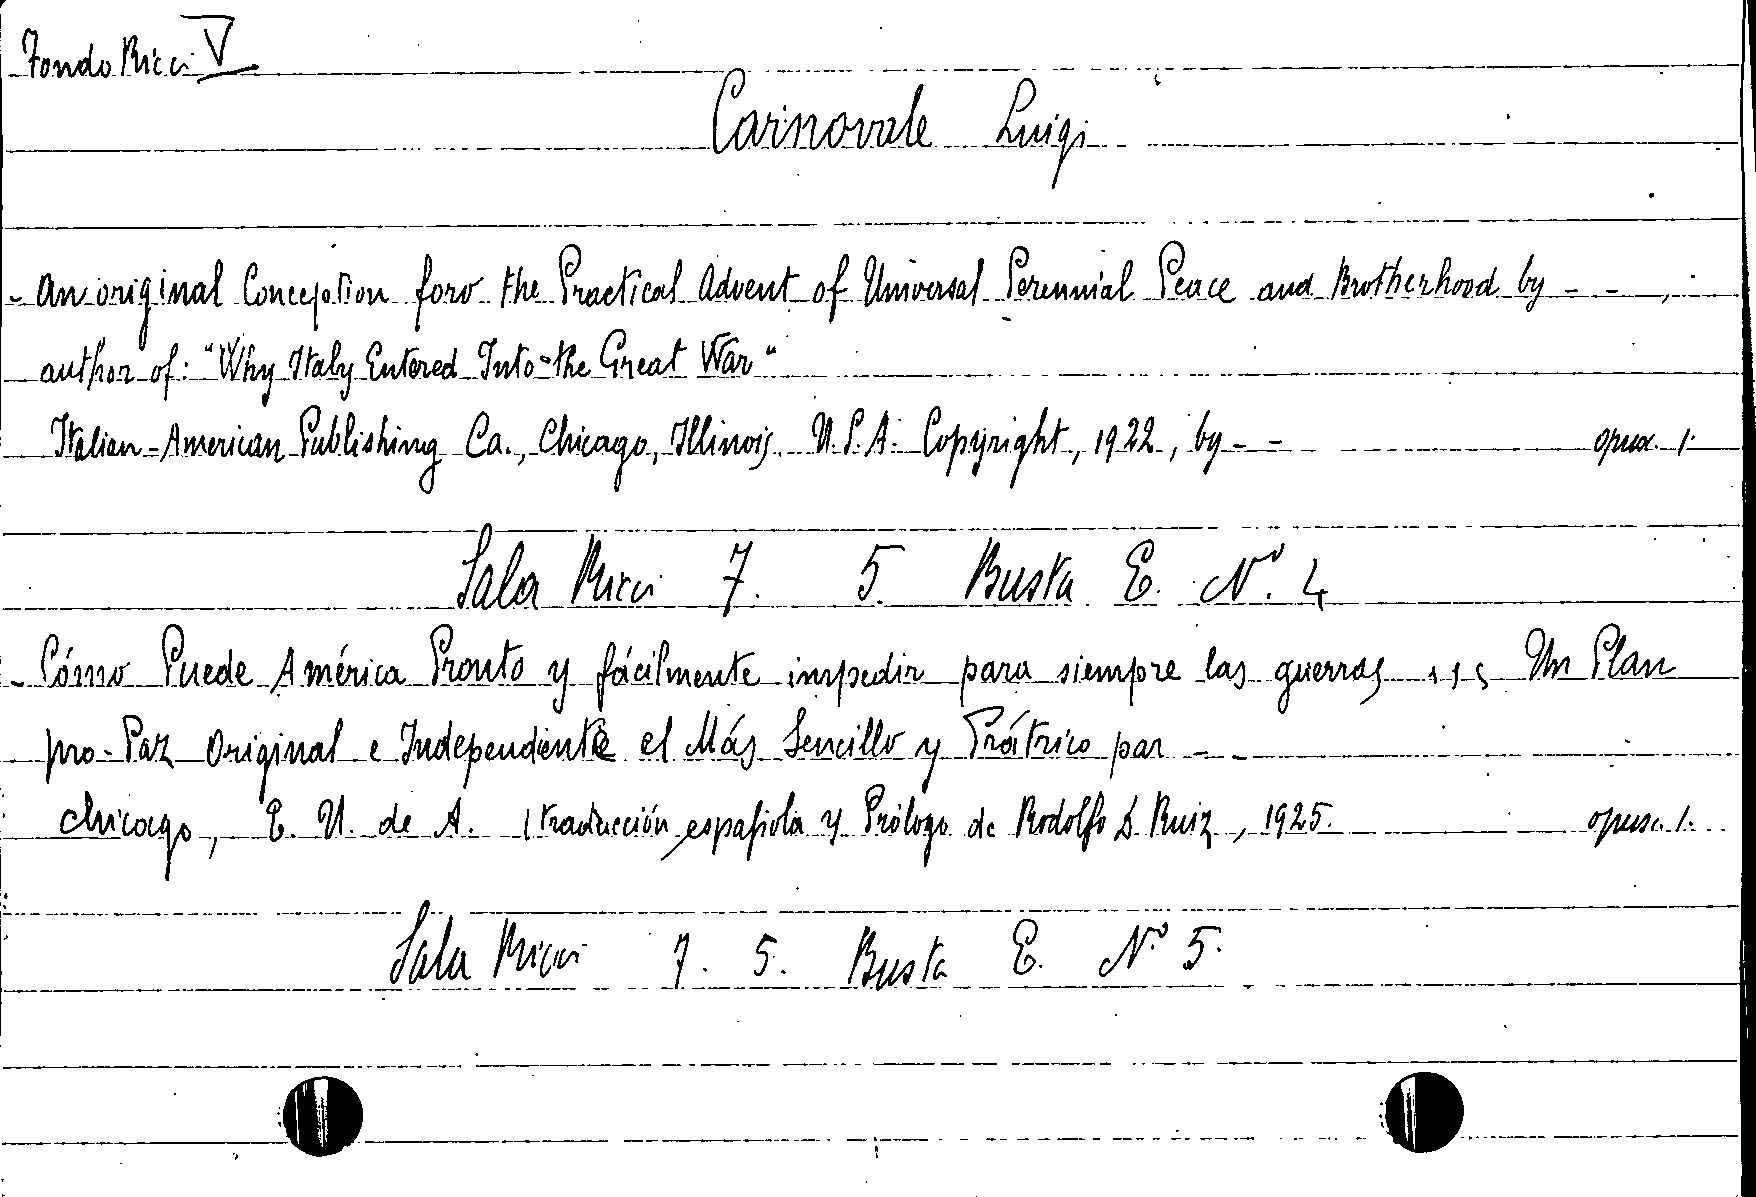 Fondo Ricci V
Carnovale Luigi
- An original Conception for the Practical Advent of Universal Perennial Peace and Brotherhood by - - ,
author of: "Why Italy Entered Into the Great War"
Italian-American Publishing Co., Chicago, Illinois U.S.A. Copyright, 1922, by - - opusc. 1.
Sala Ricci 7. 5. Busta E. N° 4
- Cómo Puede América Pronto y fácilmente impedir para siempre las guerras ... Un Plan
pro-Paz Original e Independiente el Más Sencillo y Prático par - -
Chicago, E. U. de A. (traducción española y Prólogo de Rodolfo D Ruiz, 1925. opusc. 1.
Sala Ricci 7. 5. Busta E. N° 5.